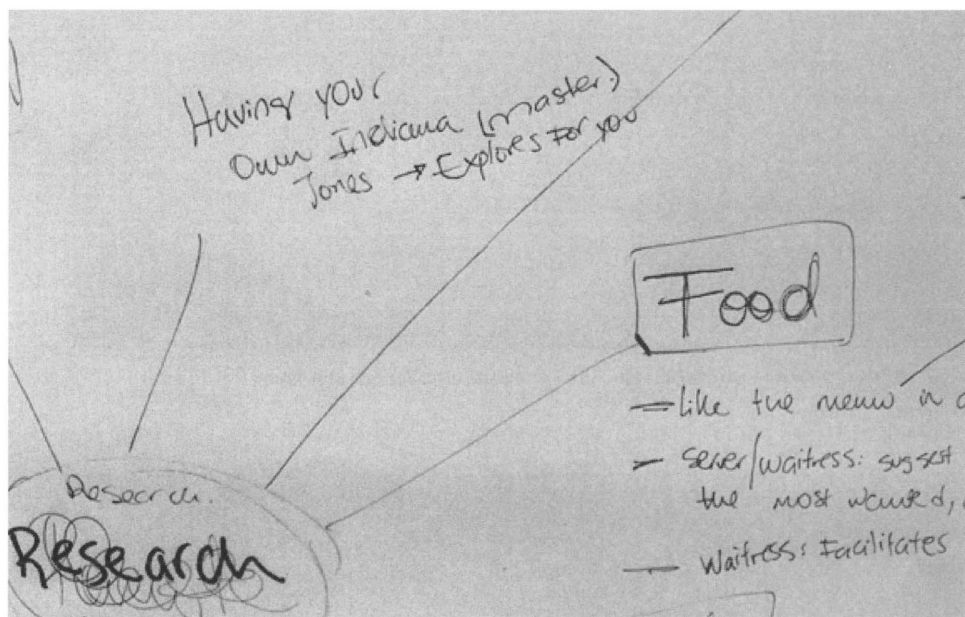 Having your
Own Indiana (master)
Jones → Explores For you
Food
like the menu in
server/waitress: suggest
the most wanted,
Waitress: Facilitates
Research.
Research